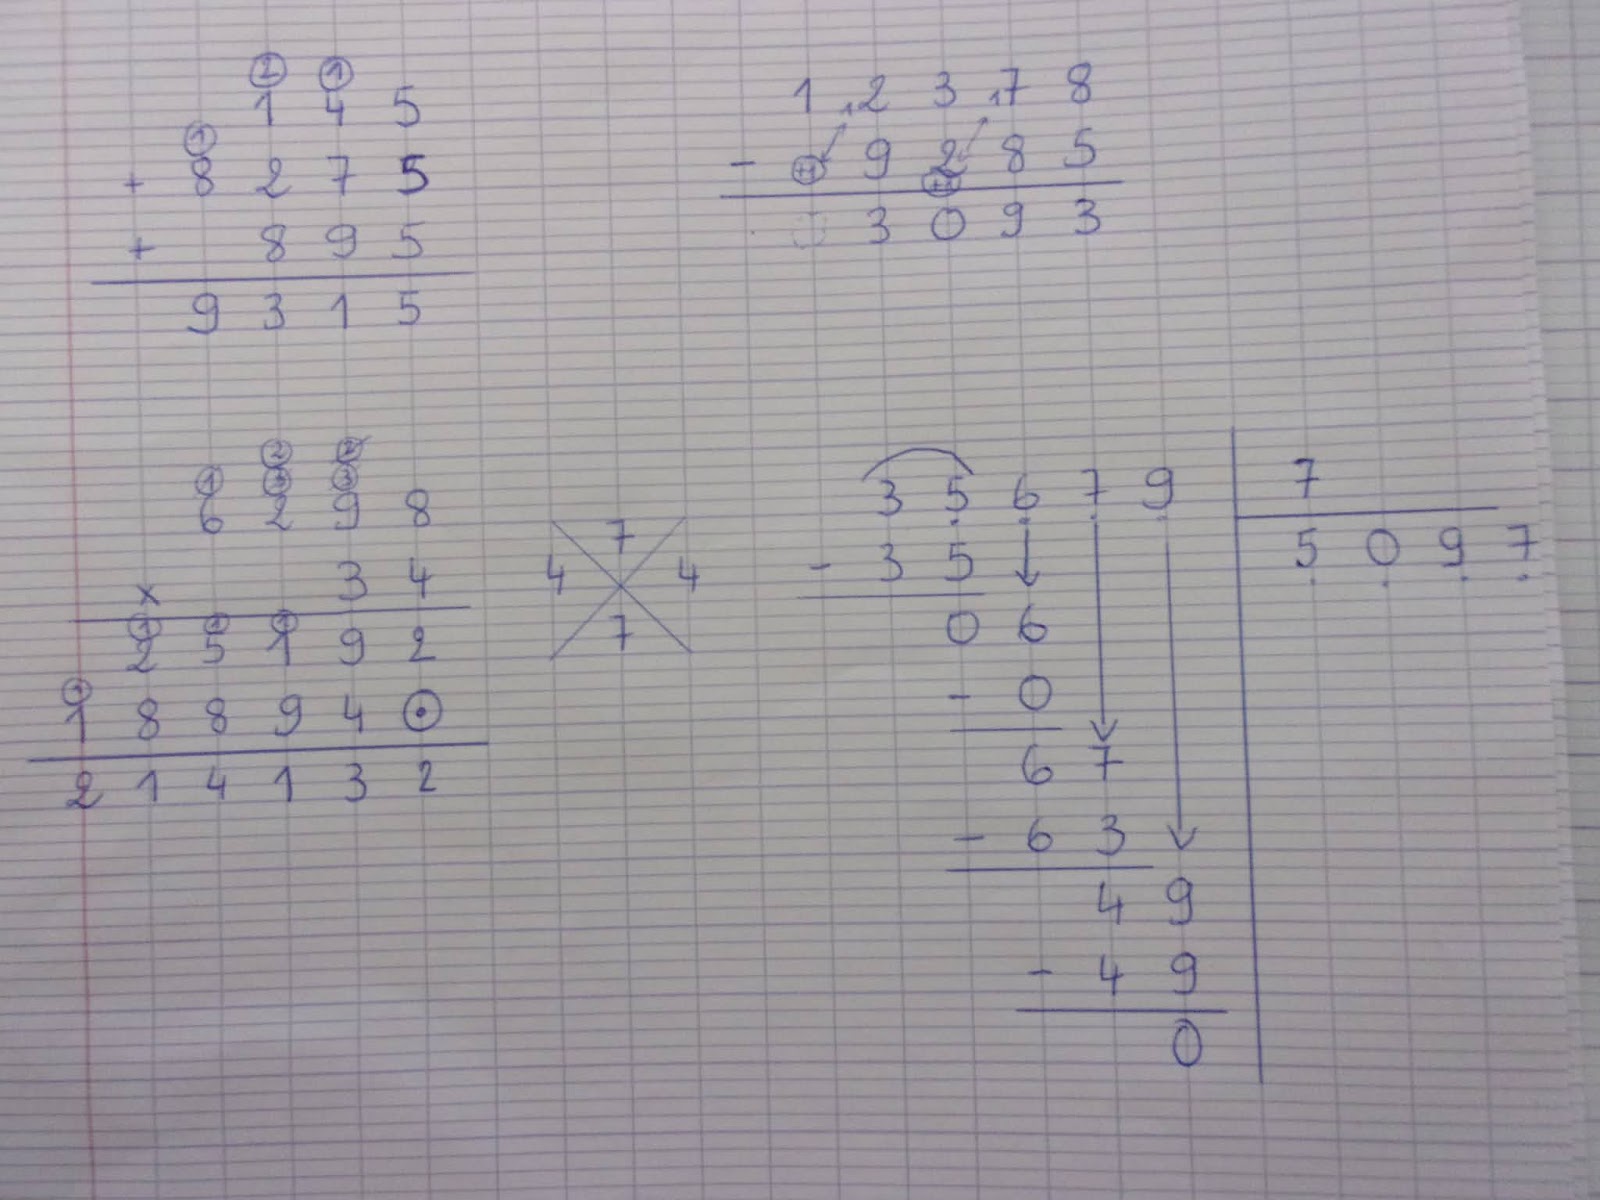 ② ①
1 4 5
①
+ 8 2 7 5
+ 8 9 5
9 3 1 5
1 ,2 3 ,7 8
- +1 9 2 8 5
+1
0 3 0 9 3
② ②
① ③ ③
6 2 9 8
x 3 4
① ① ①
2 5 1 9 2
①
1 8 8 9 4 0
2 1 4 1 3 2
7
4 4
7
3 5 6 7 9 7
- 3 5 5 0 9 7
0 6
- 0
6 7
- 6 3
4 9
- 4 9
0